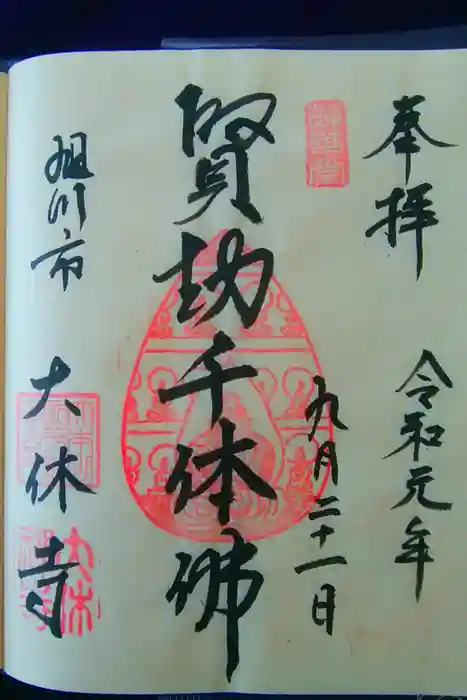 奉拝 令和元年
九月二十一日
賢劫千体佛
旭川市 大休寺